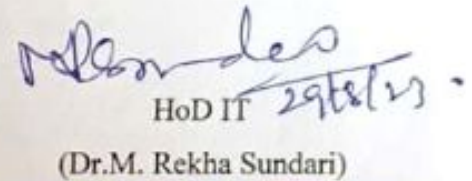 HoD IT 29/8/23
(Dr.M. Rekha Sundari)